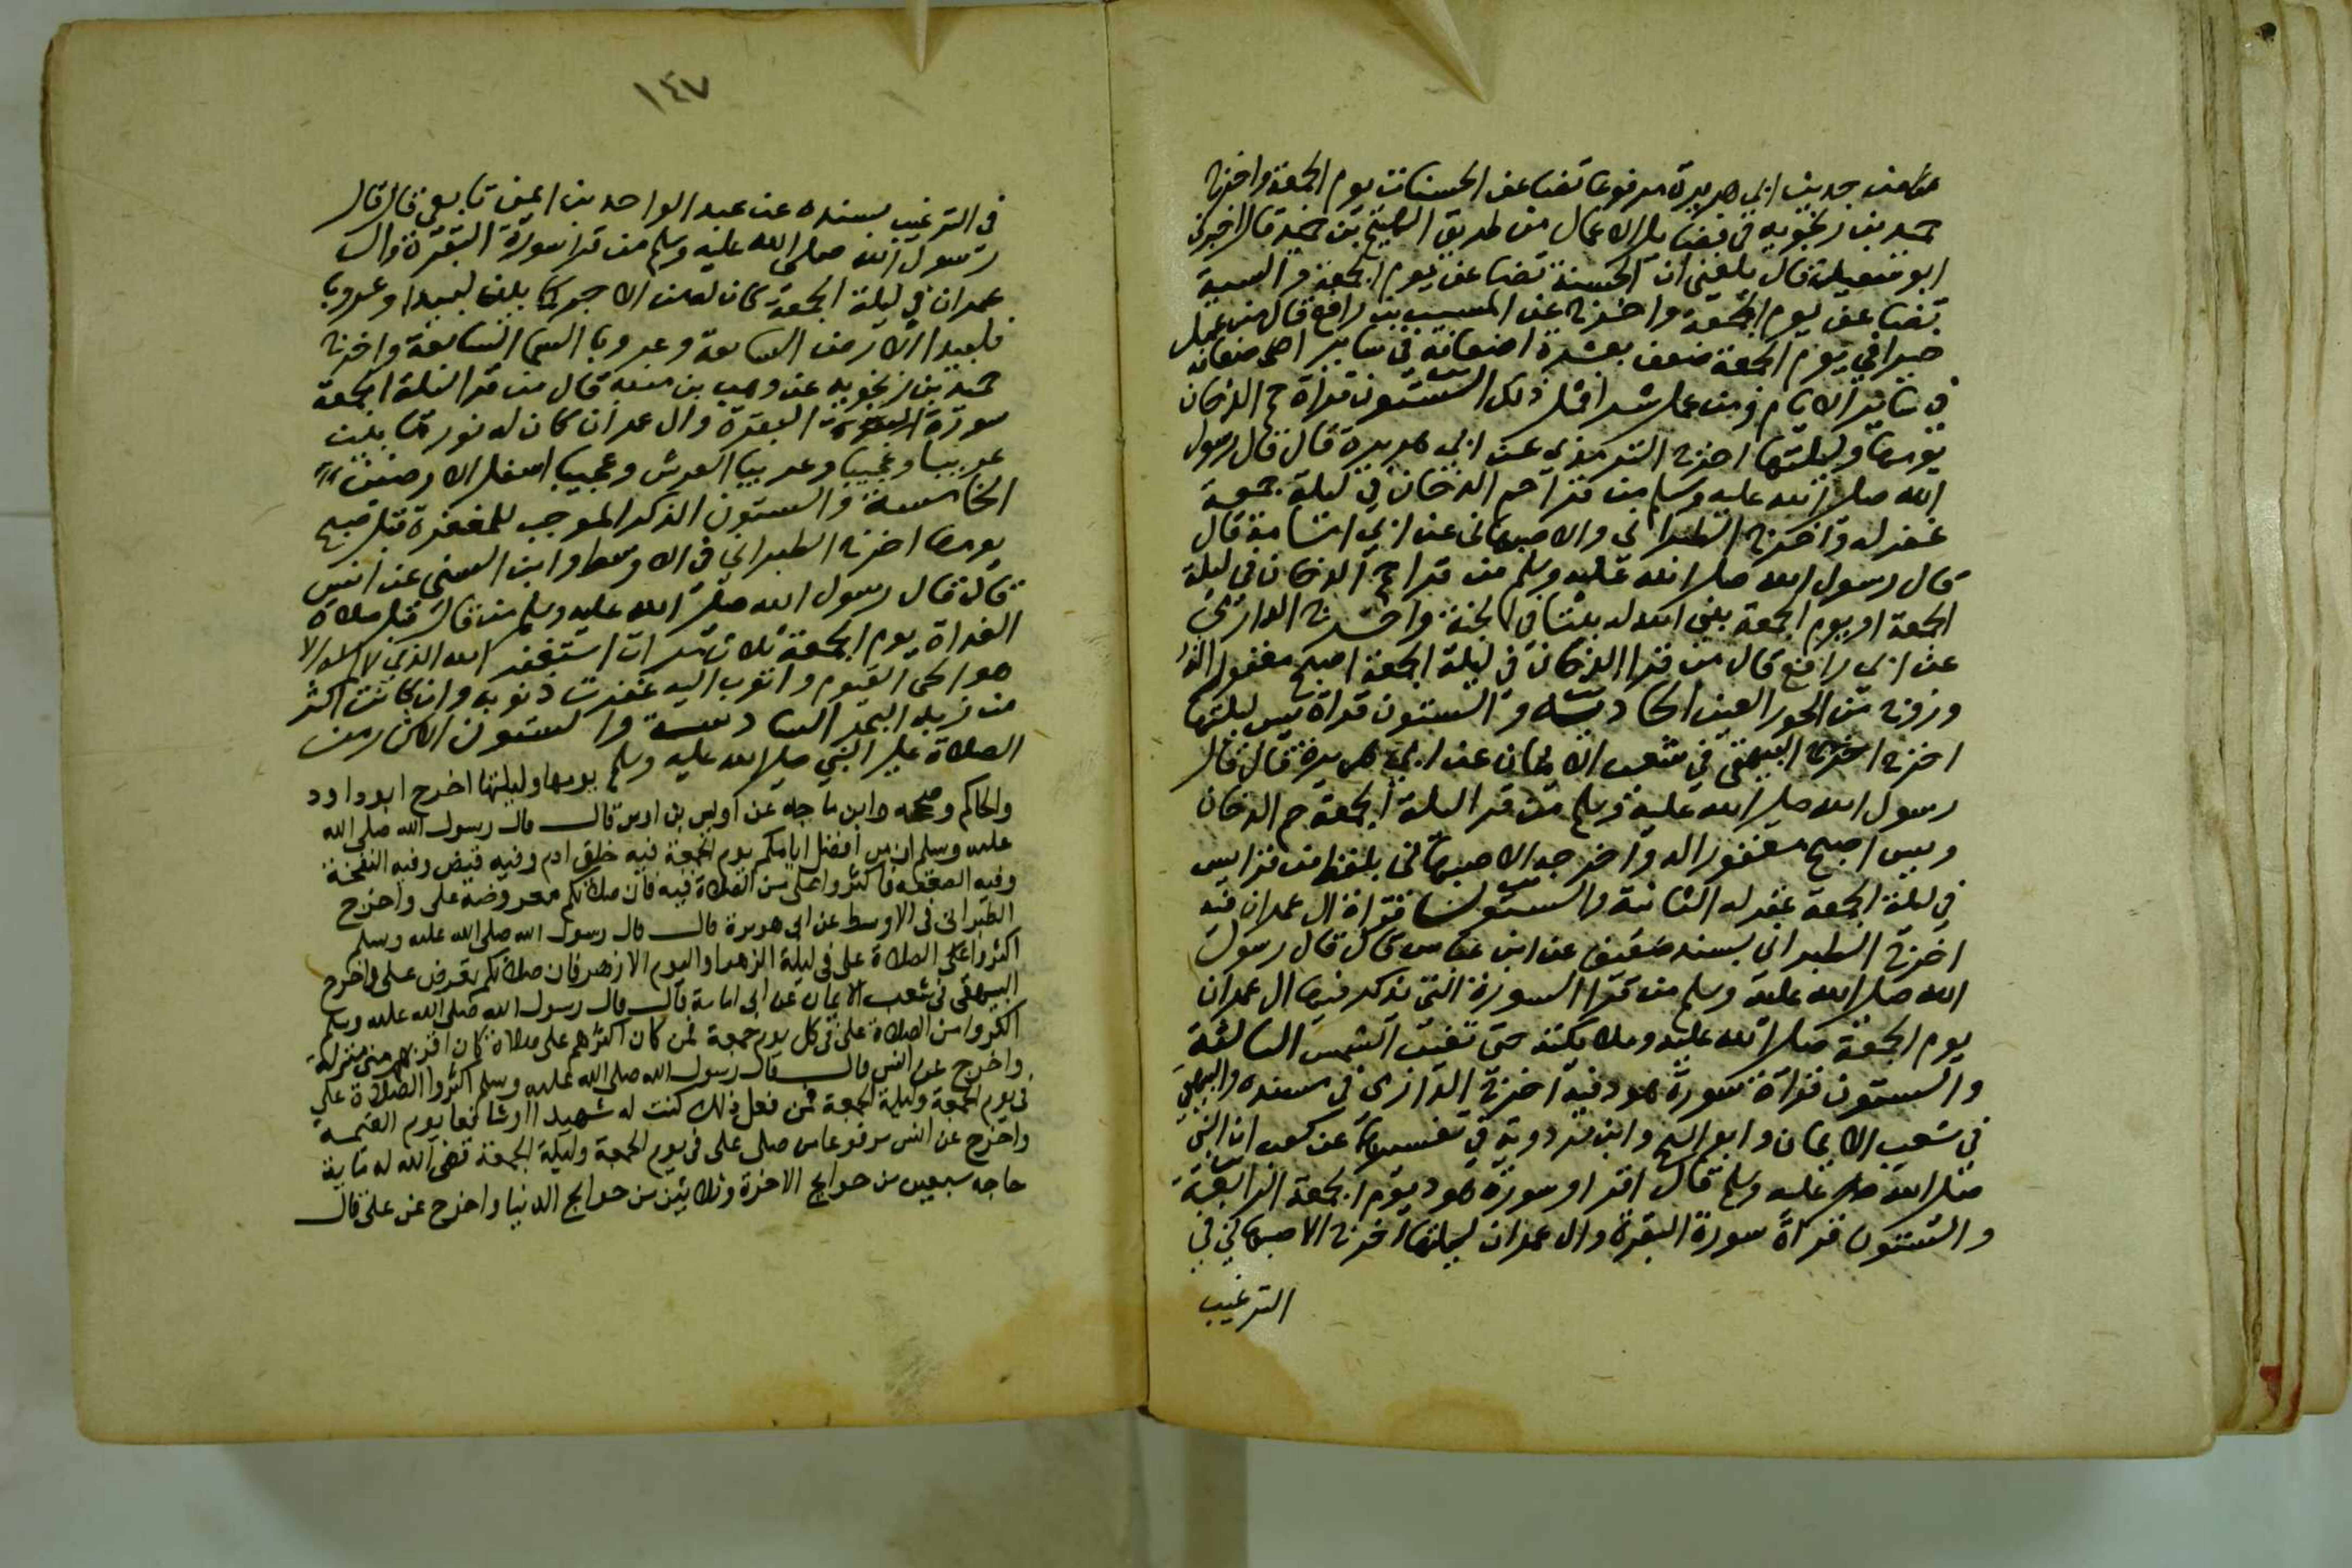 من حديث ابي هريرة مرفوعا تضاعف الحسنات يوم الجمعة واخرج
حميد بن زنجويه في فضايل الاعمال من طريق الهيثم بن حميد قال اخبرني
ابو سعيد قال بلغني ان الحسنة تضاعف يوم الجمعة والسيية
تضاعف يوم الجمعة واخرج عن المسيب بن رافع قال من عمل
خيرا في يوم الجمعة ضعف بعشرة اضعافه في ساير
في ساير الايام ومن عمل شرا فمثل ذلك الستون قراة حم الدخان
يومها وليلتها اخرج الترمذي عن ابي هريرة قال قال رسول
الله صلى الله عليه وسلم من قرا حم الدخان في ليلة جمعة
غفر له واخرج الطبراني والاصبهاني عن ابي امامة قال
قال رسول الله صلى الله عليه وسلم من قرا حم الدخان في ليلة
الجمعة او يوم الجمعة بنى الله له بيتا في الجنة واخرج الدارمي
عن ابي رافع قال من قرا الدخان في ليلة الجمعة اصبح مغفورا له
وزوج من الحور العين الحادية والستون قراة يس ليلتها
اخرج البيهقي في شعب الايمان عن ابي هريرة قال قال
رسول الله صلى الله عليه وسلم من قرا ليلة الجمعة حم الدخان
ويس اصبح مغفورا له واخرجه الاصبهاني بلفظ من قرا يس
في ليلة الجمعة غفر له الثانية والستون قراة ال عمران فيه
اخرج الطبراني بسند ضعيف عن ابن عباس قال قال رسول
الله صلى الله عليه وسلم من قرا السورة التي يذكر فيها ال عمران
يوم الجمعة صلى الله عليه وملايكته حتى تغيب الشمس الثالثة
والستون قراة سورة هود فيه اخرج الدارمي في مسنده والبيهقي
في شعب الايمان وابو الشيخ وابن مردويه في تفسيرهما عن كعب ان النبي
صلى الله عليه وسلم قال اقراوا سورة هود يوم الجمعة الرابعة
والستون قراة سورة البقرة وال عمران ليلتها اخرج الاصبهاني في
الترغيب
١٤٧
في الترغيب بسنده عن عبد الواحد بن ايمن تابعي قال قال
رسول الله صلى الله عليه وسلم من قرا سورة البقرة وال
عمران في ليلة الجمعة كان له من الاجر كما بين لبيدا وعروبا
فلبيدا الارض السابعة وعروبا السما السابعة واخرج
حميد بن زنجويه عن وهب بن منبه قال من قرا ليلة الجمعة
سورة البقرة وال عمران كان له نور ما بين
عريبا وعجيبا وعريبا العرش وعجيبا اسفل الارضين
الخامسة والستون الذكر الموجب للمغفرة قبل صبح
يومها اخرج الطبراني في الاوسط وابن السني عن انس
قال قال رسول الله صلى الله عليه وسلم من قال قبل صلاة
الغداة يوم الجمعة ثلاث مرات استغفر الله الذي لا اله الا
هو الحي القيوم واتوب اليه غفرت ذنوبه وان كانت اكثر
من زبد البحر السادسة والستون الاكثار من
الصلاة على النبي صلى الله عليه وسلم يومها وليلتها اخرج ابو داود
والحاكم وصححه وابن ماجه عن اويس بن اوس قال قال رسول الله صلى الله
عليه وسلم ان من افضل ايامكم يوم الجمعة فيه خلق ادم وفيه قبض وفيه النفخة
وفيه الصعقة فاكثروا علي من الصلاة فيه فان صلاتكم معروضة علي واخرج
الطبراني في الاوسط عن ابي هريرة قال قال رسول الله صلى الله عليه وسلم
اكثروا الصلاة علي في ليلة الزهرا واليوم الازهر فان صلاتكم تعرض علي واخرج
البيهقي في شعب الايمان عن ابي امامة قال قال رسول الله صلى الله عليه وسلم
اكثروا من الصلاة علي في كل يوم جمعة فمن كان اكثرهم علي صلاة كان اقربهم مني منزلة
واخرج عن انس قال قال رسول الله صلى الله عليه وسلم اكثروا الصلاة علي
في يوم الجمعة وليلة الجمعة فمن فعل ذلك كنت له شهيدا او شافعا يوم القيمة
واخرج عن انس مرفوعا من صلى علي في يوم الجمعة وليلة الجمعة قضى الله له ماية
حاجه سبعين من حوايج الاخرة وثلاثين من حوايج الدنيا واخرج عن علي قال